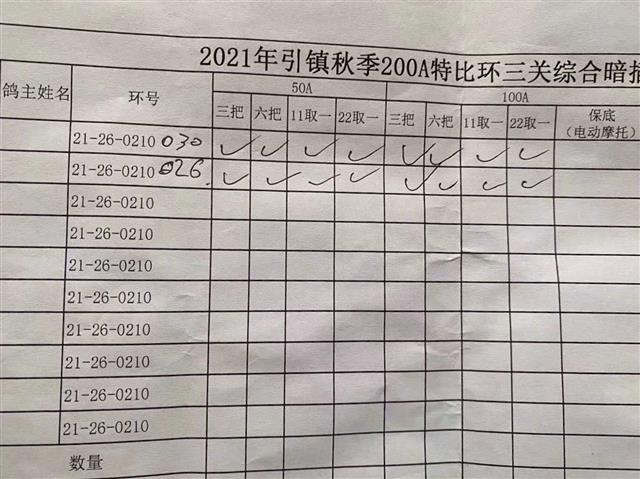 2021年引镇秋季200A特比环三关综合暗插
鸽主姓名 环号 50A 100A
三把 六把 11取一 22取一 三把 六把 11取一 22取一 保底
(电动摩托)
21-26-0210 030 ✓ ✓ ✓ ✓ ✓ ✓ ✓ ✓
21-26-0210 026 ✓ ✓ ✓ ✓ ✓ ✓ ✓ ✓
21-26-0210
21-26-0210
21-26-0210
21-26-0210
21-26-0210
21-26-0210
21-26-0210
21-26-0210
数量